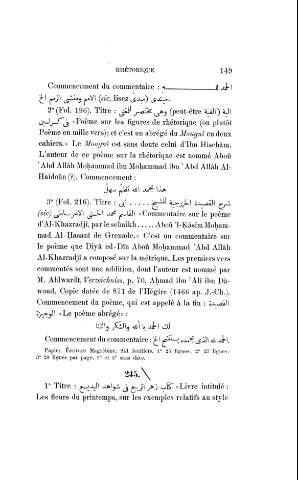 RHÉTORIQUE 149
Commencement du commentaire : الحمد لله
مبتدى (sic, lisez مبدئ) الامم ومنشى الرمم الخ.
2° (Fol. 196). Titre : وهى مختصر ألفتى (peut-être الفية) الية
فى كراسين «Poème sur les figures de rhétorique (ou plutôt
Poème en mille vers); et c'est un abrégé du Mougnî en deux
cahiers.» Le Mougnî est sans doute celui d'Ibn Hischâm.
L'auteur de ce poème sur la rhétorique est nommé Aboû
'Abd Allâh Moḥammad ibn Moḥammad ibn 'Abd Allâh Al-
Haidoûn (?). Commencement :
هذا محمد الله نظم سهل
3° (Fol. 216). Titre : شرح القصيدة الخزرجية للشيخ ..... ابى
القاسم محمد الحسنى (sic) «Commentaire sur le poème
d'Al-Khazradjî, par le schaikh ..... Aboû 'l-Kâsim Moḥam-
mad Al-Ḥasanî de Grenade.» C'est un commentaire sur
le poème que Diyâ ed-Dîn Aboû Moḥammad 'Abd Allâh
Al-Khazradjî a composé sur la métrique. Les premiers vers
commentés sont une addition, dont l'auteur est nommé par
M. Ahlwardt, Verzeichniss, p. 70, Aḥmad ibn 'Alî ibn Dâ-
woud. Copie datée de 871 de l'Hégire (1466 ap. J.-Ch.).
Commencement du poème, qui est appelé à la fin : القصيدة
الوجيزة «Le poème abrégé» :
لك الحمد يا الله والشكر والثنا
Commencement du commentaire : الحمد لله الذى بحمده يستفتح الخ.
Papier. Écriture Magrébine. 241 feuillets. 1° 25 lignes; 2° 27 lignes;
3° 28 lignes par page. 1° et 2° sans date.
245.
1° Titre : كتاب زهر الربيع فى شواهد البديع «Livre intitulé :
Les fleurs du printemps, sur les exemples relatifs au style